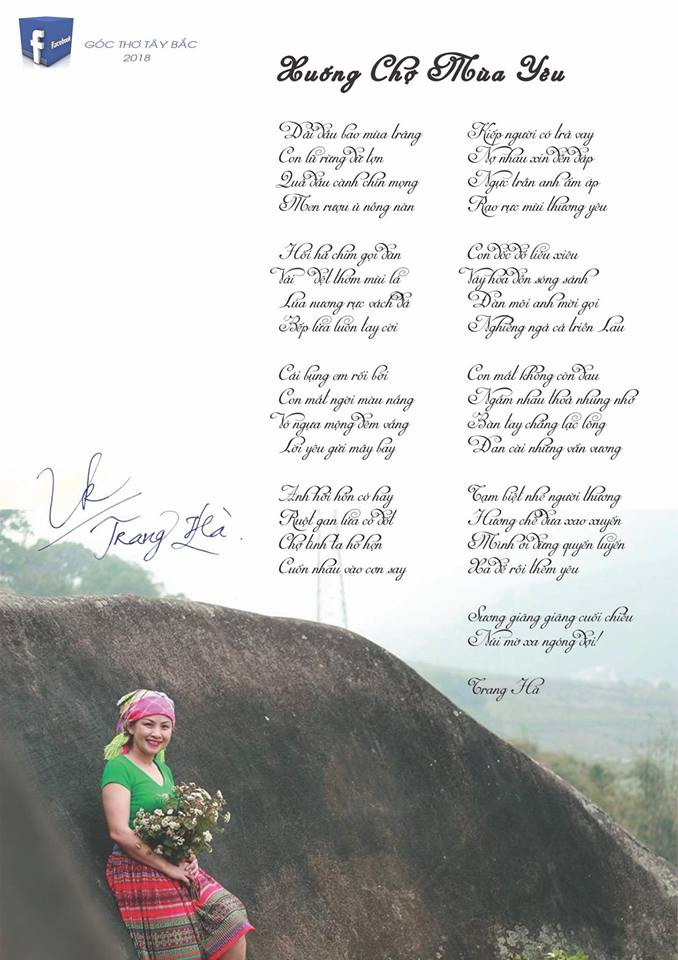 Facebook
GÓC THƠ TÂY BẮC
2018
Xuống Chợ Mùa Yêu
Dãi dầu bao mùa trăng
Con lũ rừng dữ lợn
Quả dâu cành chín mọng
Men rượu ủ nồng nàn
Hối hả chim gọi đàn
Vải dệt thơm mùi lá
Lúa nương rực vách đá
Bếp lửa luôn tay cời
Cái bụng em rối bời
Con mắt ngời màu nắng
Vó ngựa mộng đêm vắng
Lời yêu gửi mây bay
Anh hỡi hồn có hay
Ruột gan lửa cỏ đốt
Chợ tình ta hò hẹn
Cuốn nhau vào cơn say
Kiếp người có trả vay
Nợ nhau xin đền đáp
Ngực trần anh ấm áp
Rạo rực mùi thương yêu
Con dốc đổ liêu xiêu
Váy hoa dồn sóng sánh
Đàn môi anh mời gọi
Nghiêng ngả cả triền Lau
Con mắt không còn đau
Ngắm nhau thoả nhung nhớ
Bàn tay chẳng lạc lõng
Đan cài những vấn vương
Tạm biệt nhé người thương
Hương chè đưa xao xuyến
Mình ơi đừng quyến luyến
Xa để rồi thêm yêu
Sương giăng giăng cuối chiều
Núi mờ xa ngóng đợi!
Trang Hà
Trang Hà.